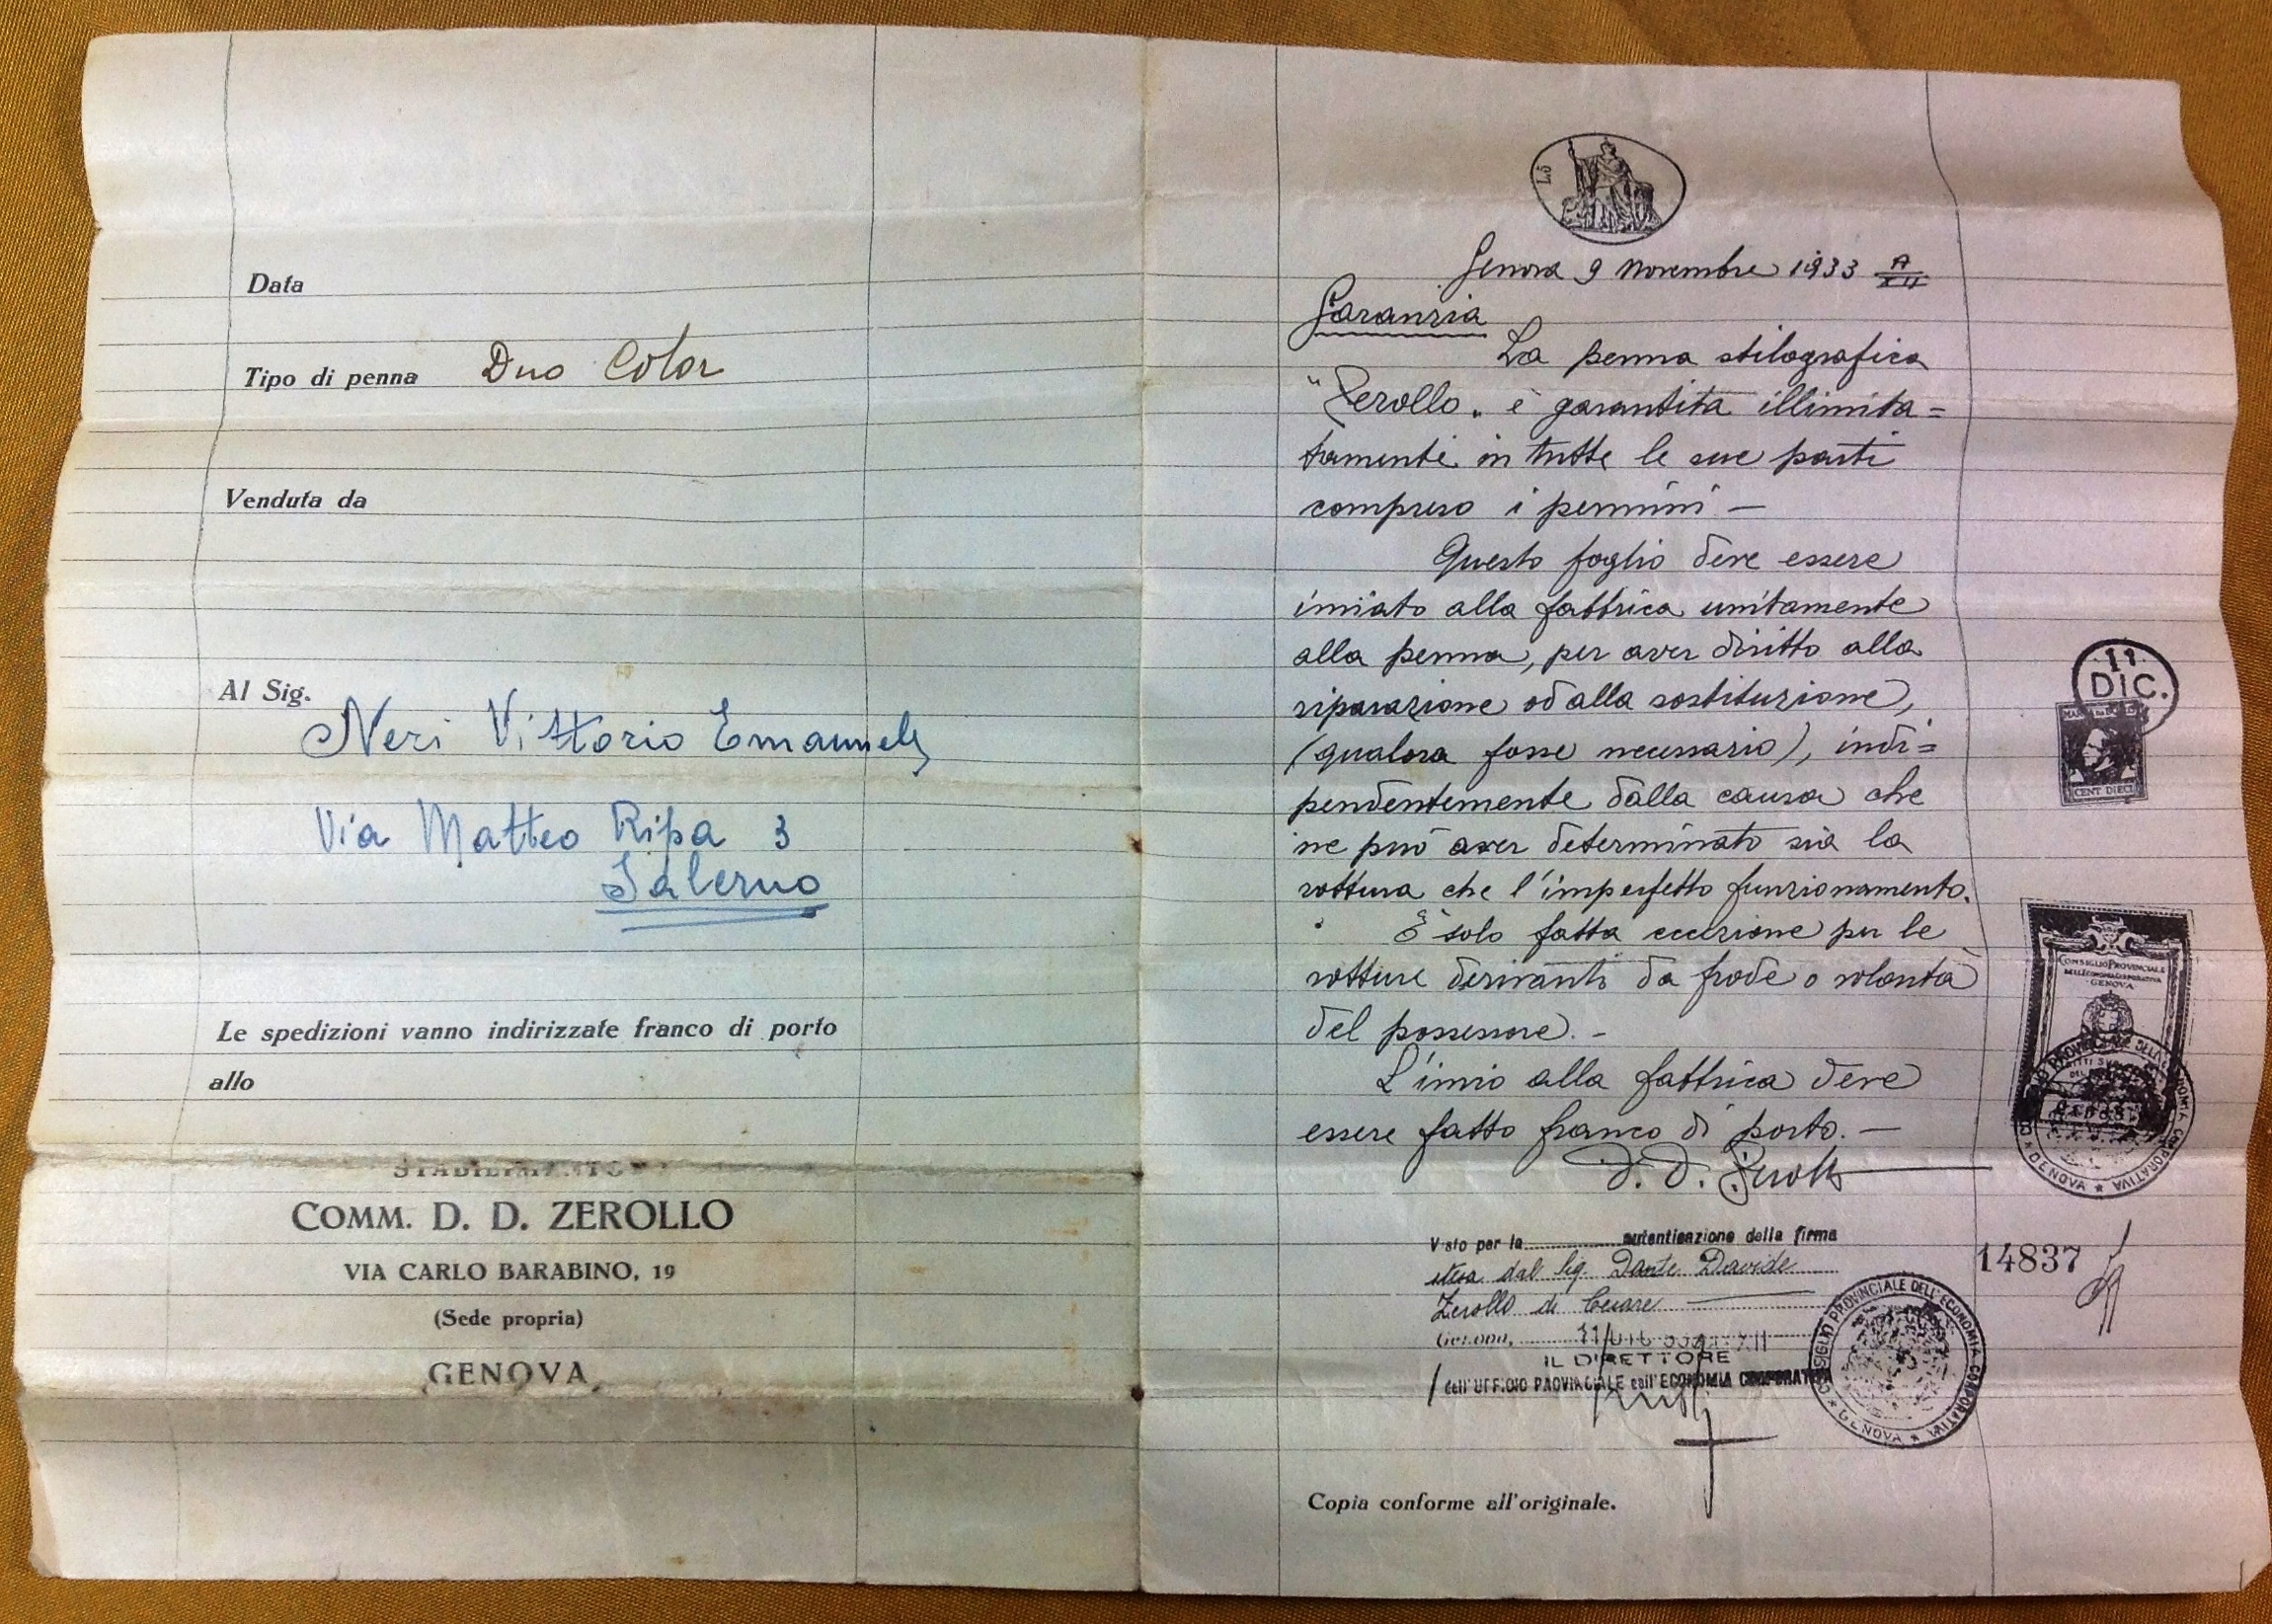 Data
Tipo di penna Duo Color
Venduta da
Al Sig.
Neri Vittorio Emanuele
Via Matteo Ripa 3
Salerno
Le spedizioni vanno indirizzate franco di porto
allo
STABILIMENTO
COMM. D. D. ZEROLLO
VIA CARLO BARABINO, 19
(Sede propria)
GENOVA
L.5
Genova 9 Novembre 1933 A XII
Garanzia
La penna stilografica
"Zerollo" è garantita illimita=
tamente in tutte le sue parti
compreso i pennini —
Questo foglio deve essere
inviato alla fabbrica unitamente
alla penna, per aver diritto alla
riparazione od alla sostituzione,
(qualora fosse necessario), indi=
pendentemente dalla causa che
ne può aver determinato sia la
rottura che l'imperfetto funzionamento.
È solo fatta eccezione per le
rotture derivanti da frode o volontà
del possessore. -
L'invio alla fabbrica deve
essere fatto franco di porto. —
D. D. Zerollo
11 DIC.
CENT DIECI
CONSIGLIO PROVINCIALE
DELL'ECONOMIA CORPORATIVA
GENOVA
CONSIGLIO PROVINCIALE DELL'ECONOMIA CORPORATIVA
GENOVA
Visto per la autenticazione della firma
stesa dal Sig. Dante Davide
Zerollo di Cesare
Genova, 11 DIC XII
IL DIRETTORE
dell'UFFICIO PROVINCIALE dell'ECONOMIA CORPORATIVA
CONSIGLIO PROVINCIALE DELL'ECONOMIA CORPORATIVA
GENOVA
14837
Copia conforme all'originale.